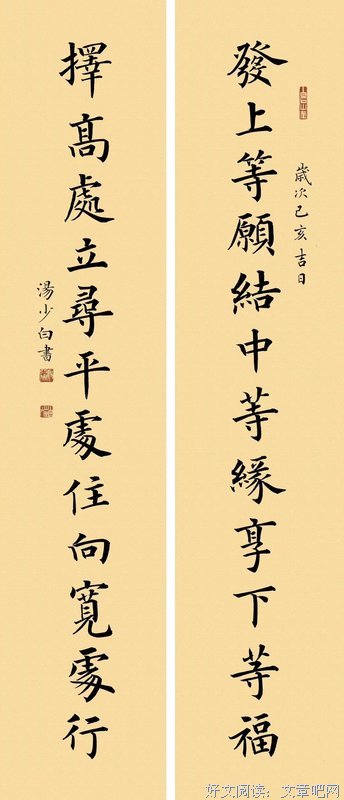 發上等願結中等緣享下等福
歲次己亥吉日
擇高處立尋平處住向寬處行
湯少白書
好文阅读：文章吧网